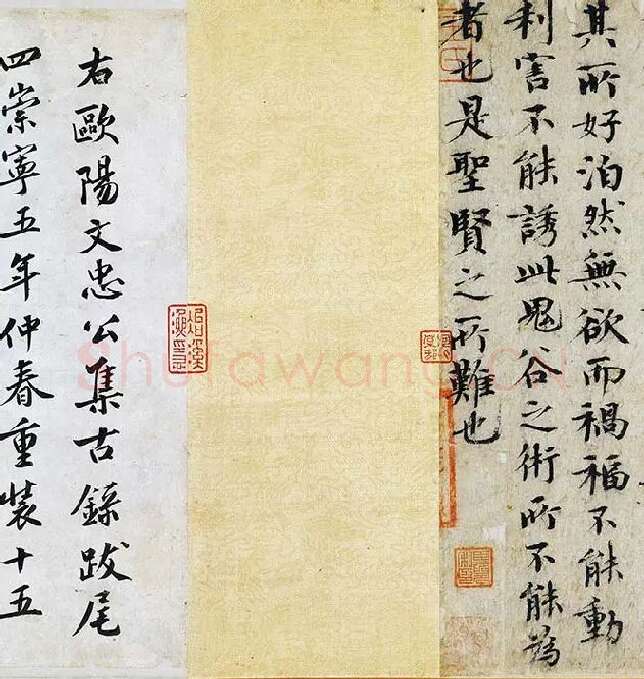 其所好泊然無欲而禍福不能動
利害不能誘此鬼谷之術所不能為
者也是聖賢之所難也
右歐陽文忠公集古錄跋尾
四崇寧五年仲春重裝十五
Shufawang.CN